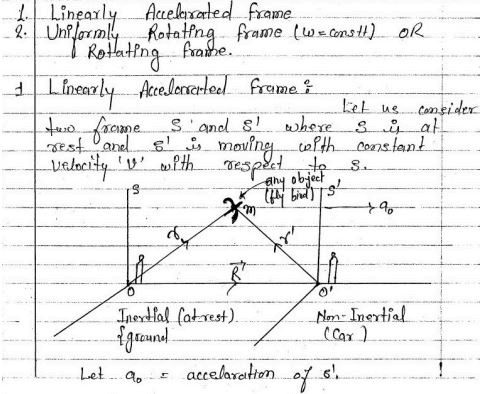 1. Linearly Accelarated frame
2. Uniformly Rotating frame (ω=const) OR
Rotating frame.
1 Linearly Accelarated frame:
Let us consider
two frame S and S' where S is at
rest and S' is moving with constant
velocity 'v' with respect to S.
any object
(fly bird)
S
S'
m
a₀
r
r'
R⃗
O
O'
Inertial (at rest)
{ground
Non-Inertial
(Car)
Let a₀ = accelaration of S'.